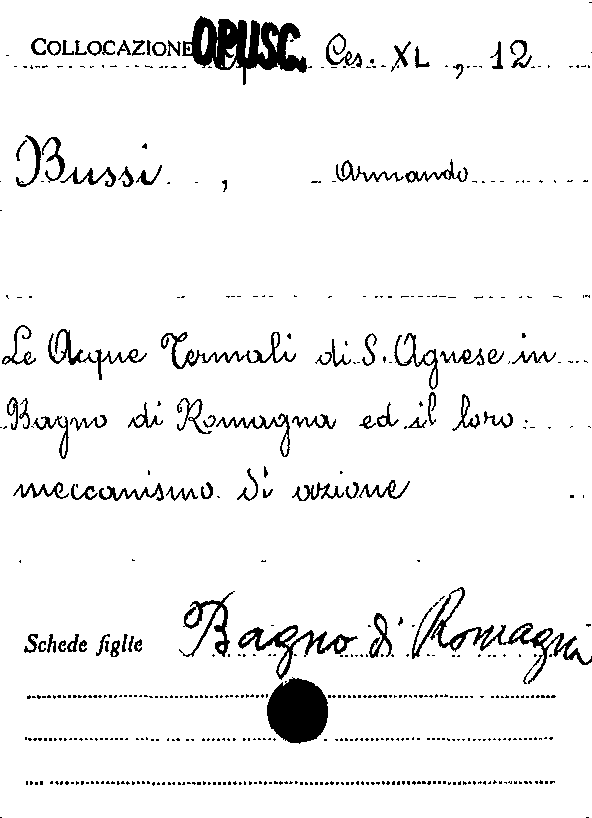 COLLOCAZIONE OPUSC. Ces. XL, 12
Bussi, Armando
Le Acque Termali di S. Agnese in
Bagno di Romagna ed il loro
meccanismo di azione
Schede figlie Bagno di Romagna